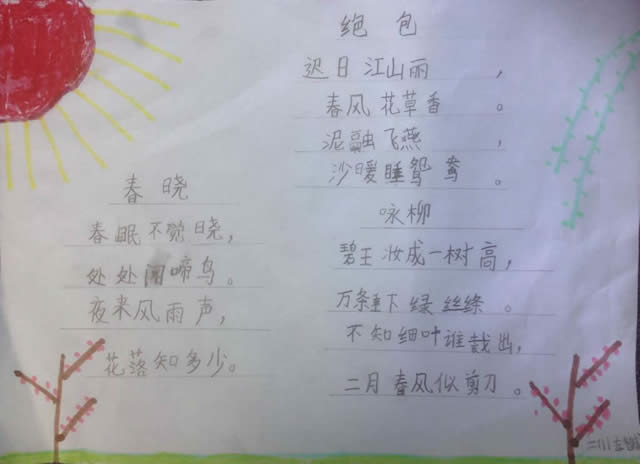 春晓
春眠不觉晓，
处处闻啼鸟。
夜来风雨声，
花落知多少。
绝包
迟日江山丽，
春风花草香。
泥融飞燕，
沙暖睡鸳鸯。
咏柳
碧玉妆成一树高，
万条垂下绿丝绦。
不知细叶谁裁出，
二月春风似剪刀。